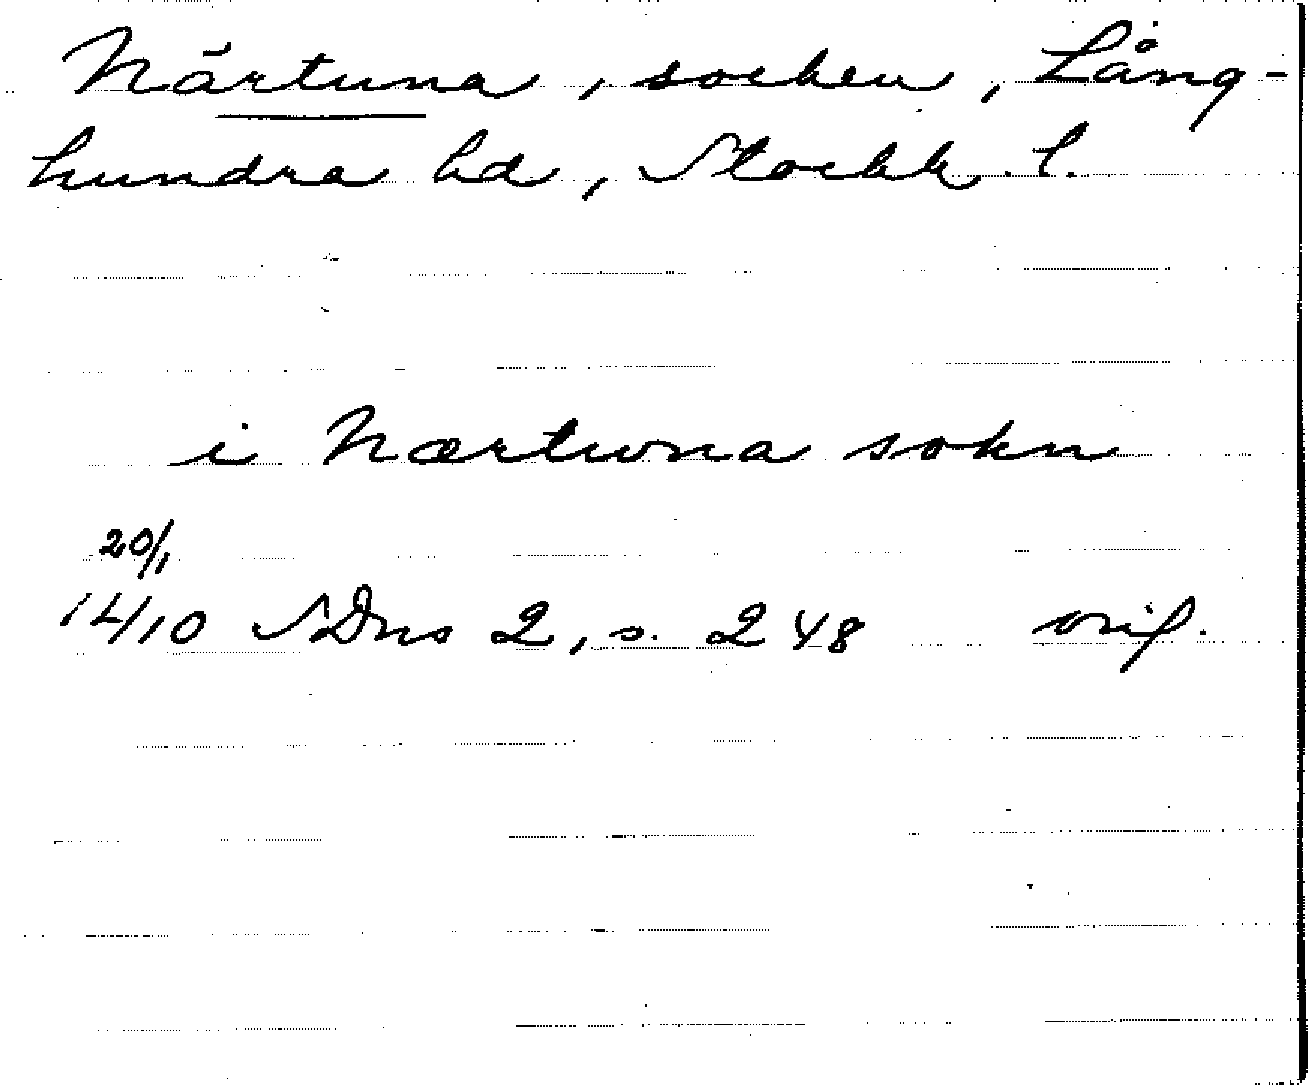 Närtuna, socken, Lång-
hundra hd, Stockh. l.
i Nærtwna sokn
20/1
1410 SDns 2, s. 248 orig.